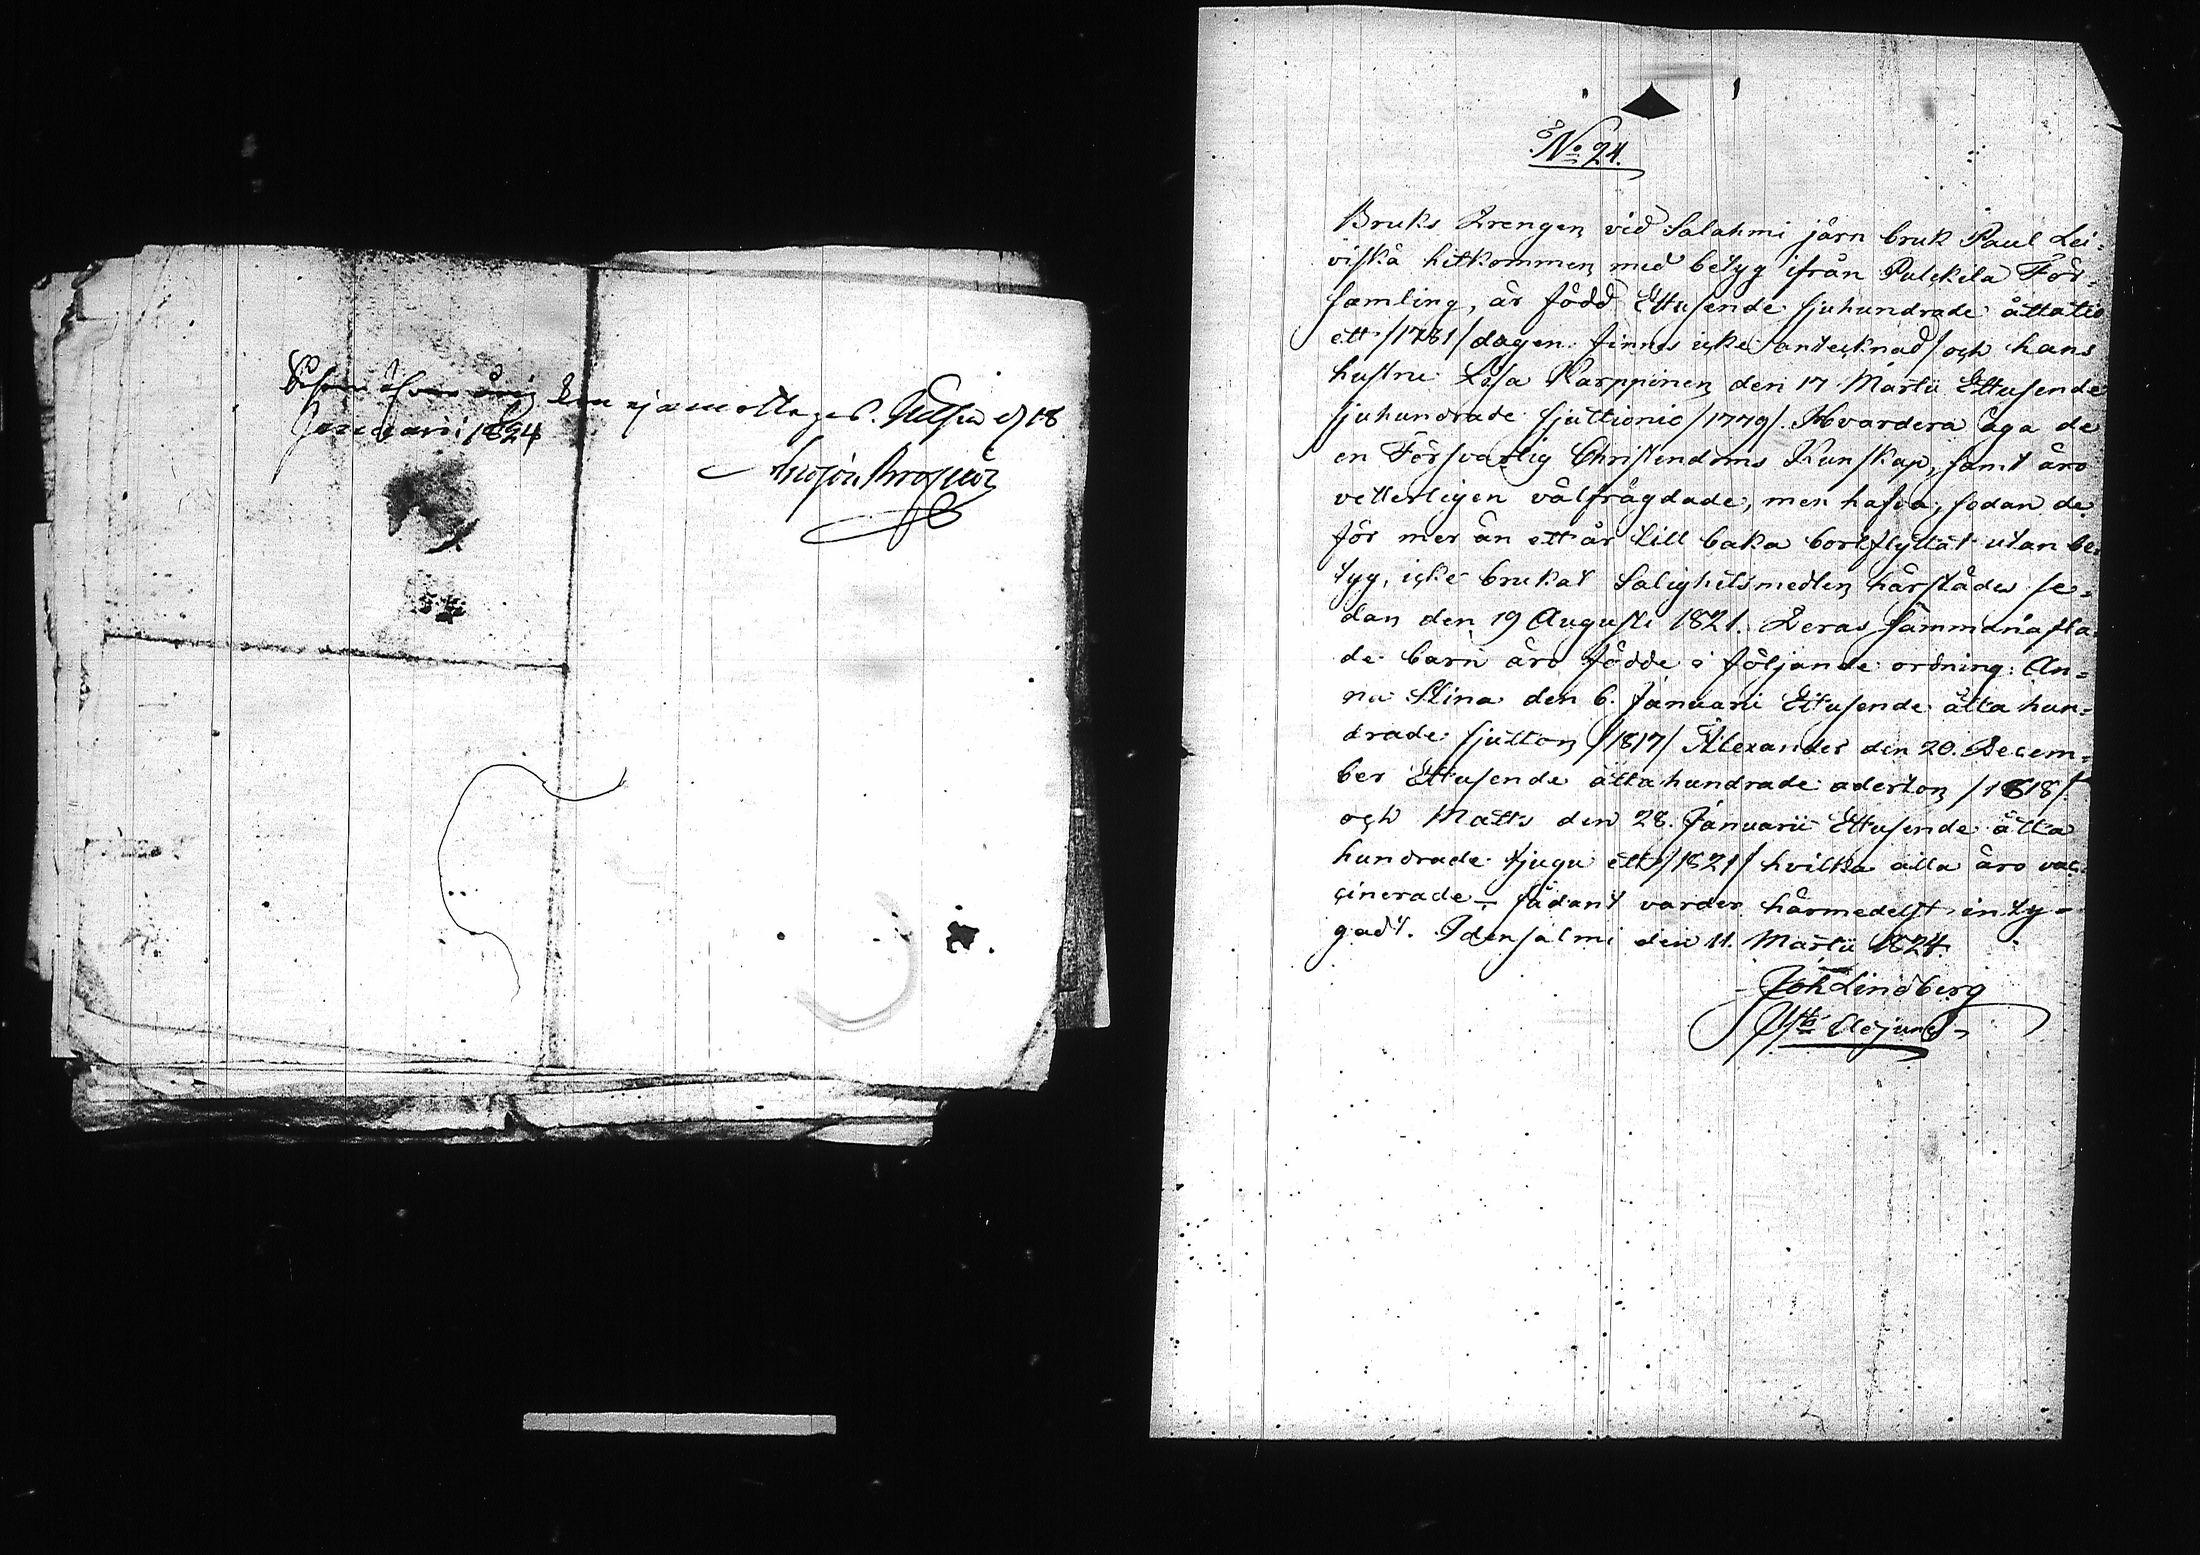 kan ej emottagas. Nilsiä d 18
Januari 1824
No 24.
Bruks Drengen vid Salahmi järn bruk Paul Lei-
viskä hitkommen med betyg ifrån Pulckila För-
samling, är född Ettusende sjuhundrade åttatio
ett /1781/ dagen finnes icke antecknad/ och hans
hustru Lisa Karppinen den 17 Martii Ettusende
sjuhundrade sjuttionio /1779/. Hvardera äga de
en Försvarlig Christendoms Kunskap, samt äro
vetterligen välfrägdade, men hafva, sedan de
för mer än ett år till baka bortflyttat utan be-
tyg, icke brukat Salighetsmedlen härstädes se-
dan den 19 Augusti 1821. Deras sammanafla-
de barn äro födde i följande ordning: An-
na Stina den 6. Januarii Ettusende åtta hun-
drade sjutton /1817/ Alexander den 20. Decem-
ber Ettusende åttahundrade aderton /1818/
och Matts den 28. Januarii Ettusende åtta
hundrade tjugu ett /1821/ hvilka alla äro vac-
cinerade – sådant varder härmedelst inty-
gadt. Idensalmi den 11. Martii 1824.
Joh Lindberg
Adjunct